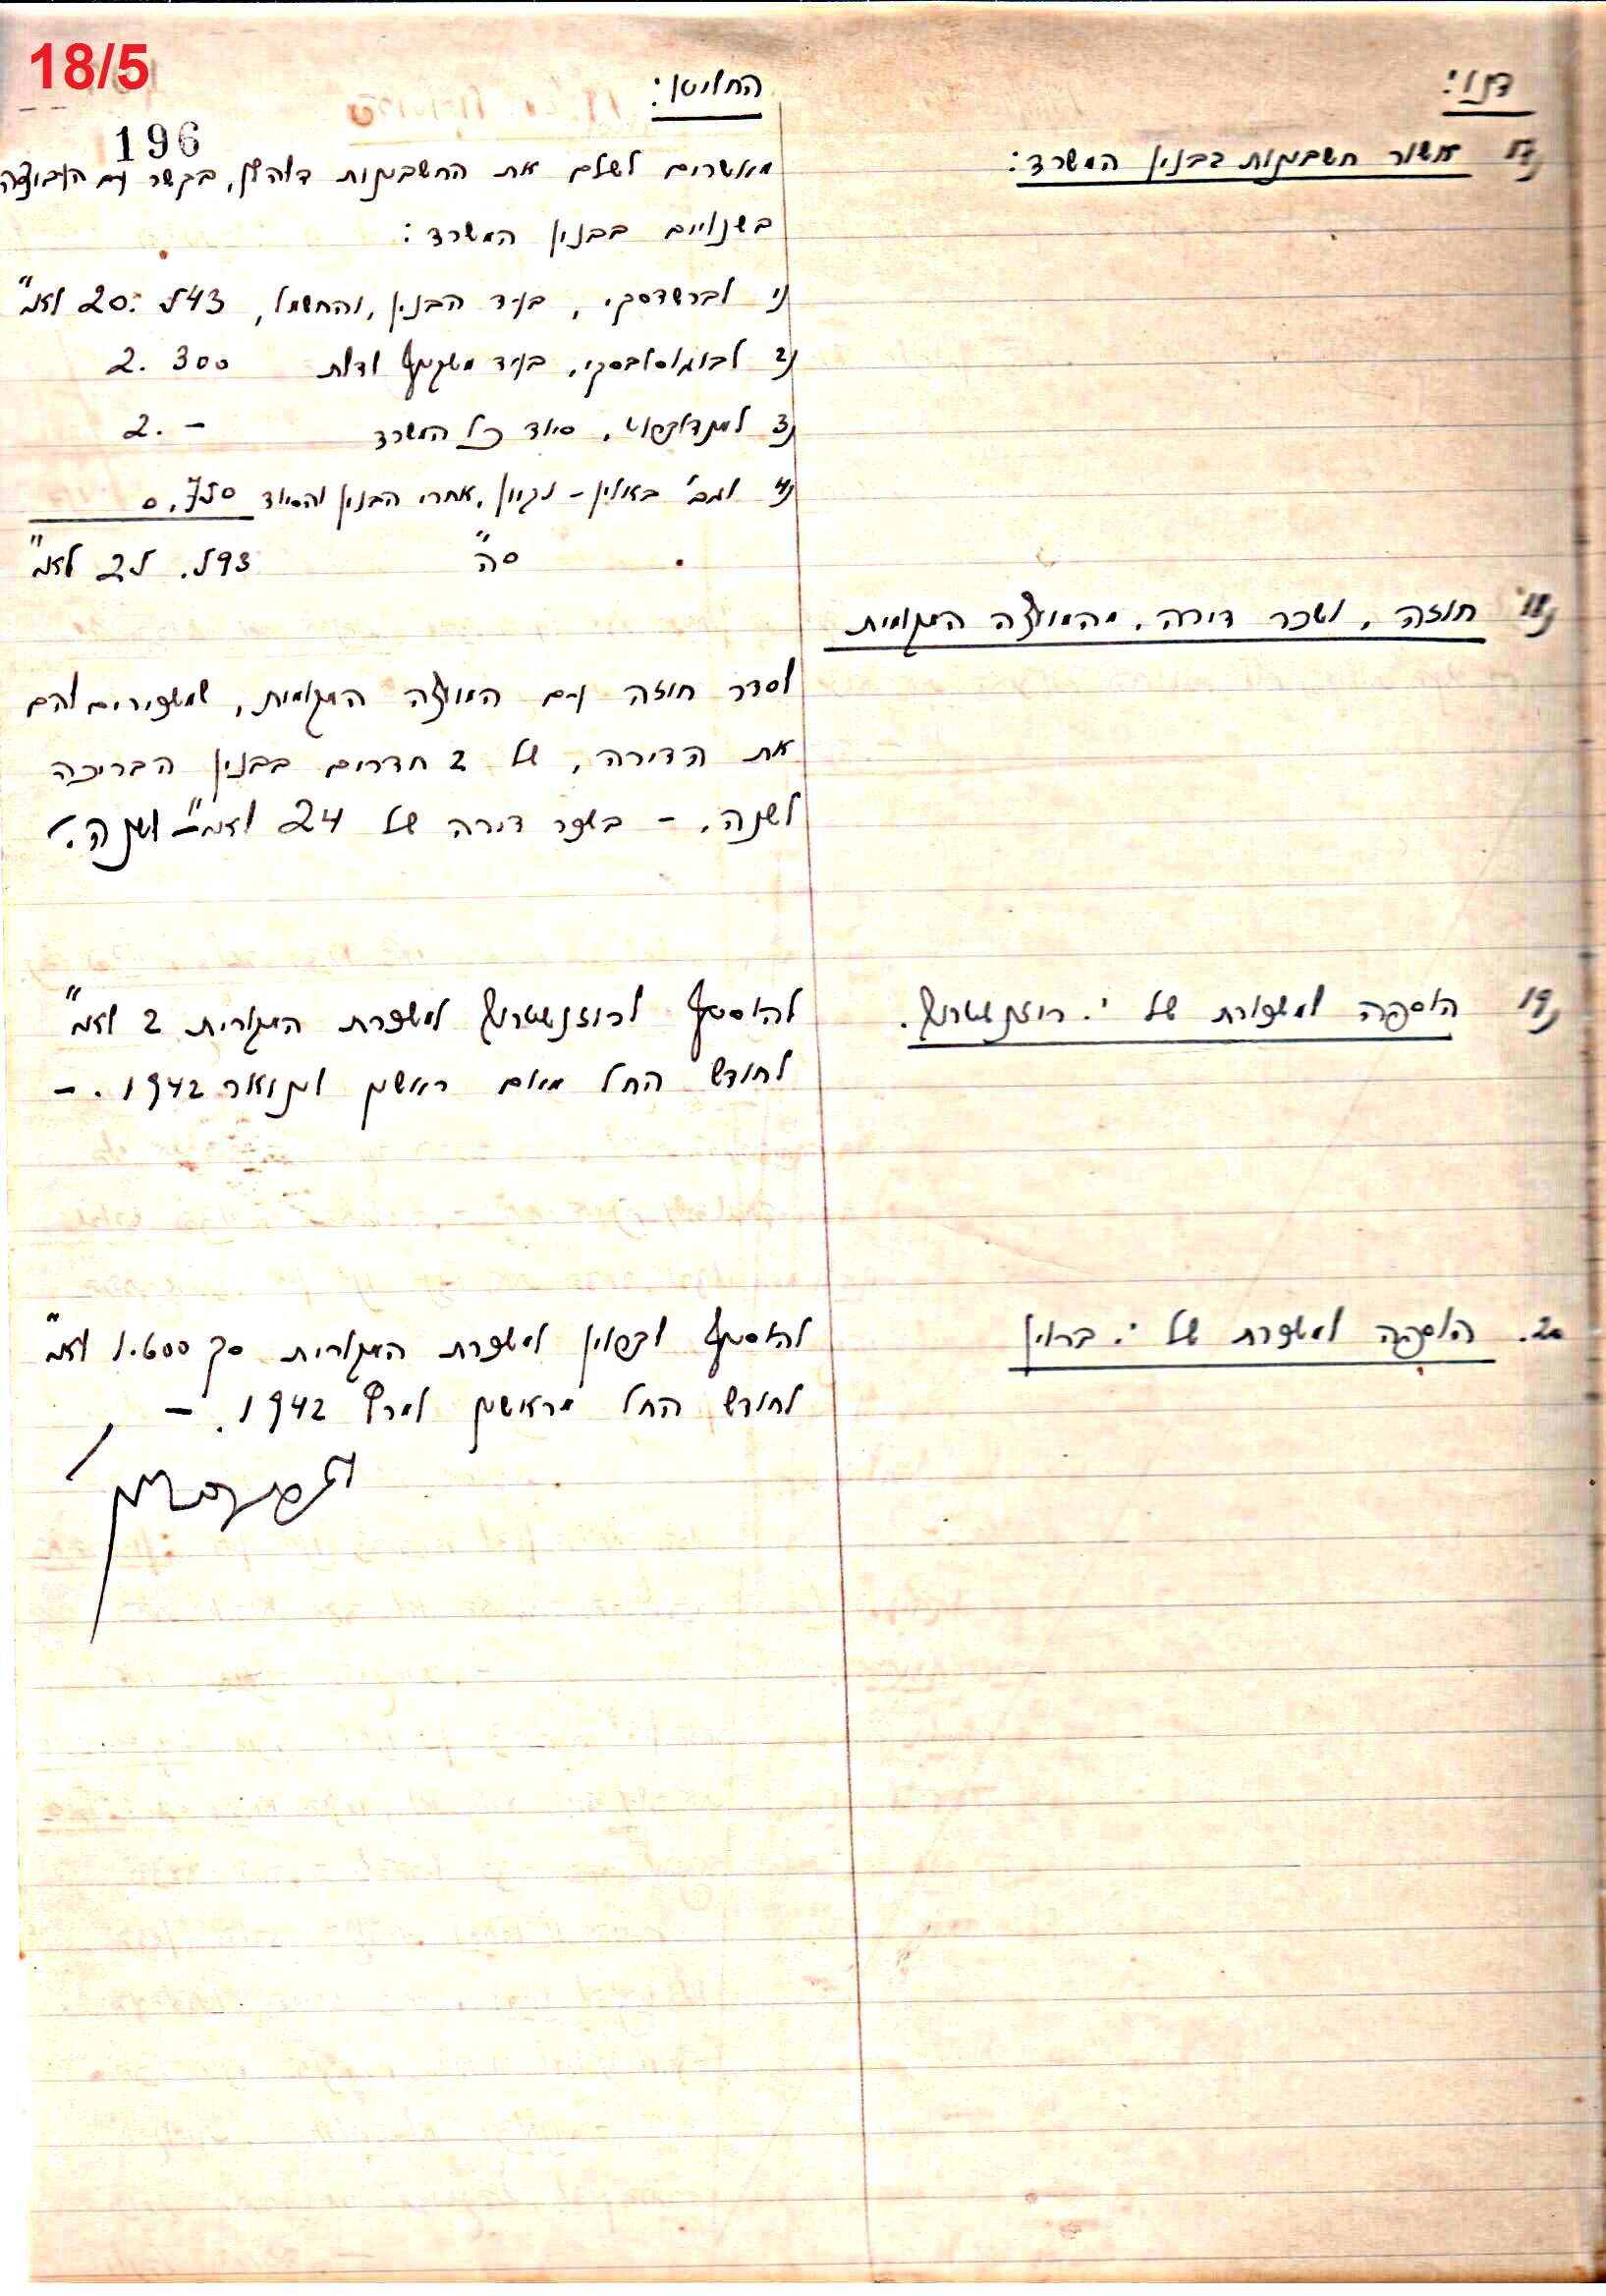 18/5
196
דנו:
החליטו:
17) אשור חשבונות בבנין המשרד:
מאשרים לשלם את החשבונות דלהלן, בקשר עם
בשנויים בבנין המשרד:
1) לברשדסקי, בעד הבנין, והחשמל, 20. לא"י
2) לבוגוסלבסקי, בעד משקוף ודלת 2.300
3) סיוד כל המשרד 2.-
4) לגב' נקיון, אחרי הבנין והסיוד 0.750
ס"ה לא"י
18) חוזה, ושכר דירה, מהמועצה המקומית
לסדר חוזה עם המועצה המקומית, שמשכירים להם
את הדירה, של 2 חדרים בבנין הבריכה
לשנה. - בשכר דירה של 24 לא"י לשנה.
19) הוספה למשכורת של י. רוזנשטרוך.
להוסיף לרוזנשטרוך למשכרת המקורית 2 לא"י
לחודש החל מיום ראשון ינואר 1942. -
20. הוספה למשכרת של י. ברוין
להוסיף למשכרת המקורית סך 1.600 לא"י
לחודש החל מראשון למרץ 1942. -